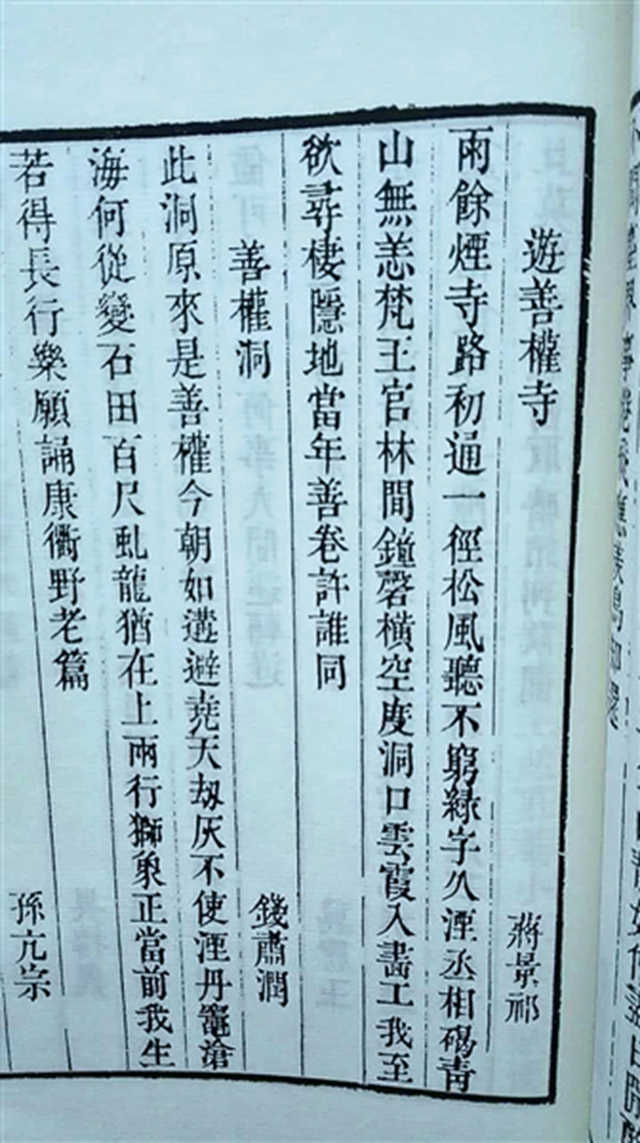 遊善權寺 蔣景祁
雨餘煙寺路初通一徑松風聽不窮綠字久湮丞相碣青
山無恙梵王宮林間鐘磬橫空度洞口雲霞入畫工我至
欲尋棲隱地當年善卷許誰同
善權洞 錢肅潤
此洞原來是善權今朝如遘避堯天刼灰不使湮丹竈滄
海何從變石田百尺虬龍猶在上兩行獅象正當前我生
若得長行樂願誦康衢野老篇
孫亢宗